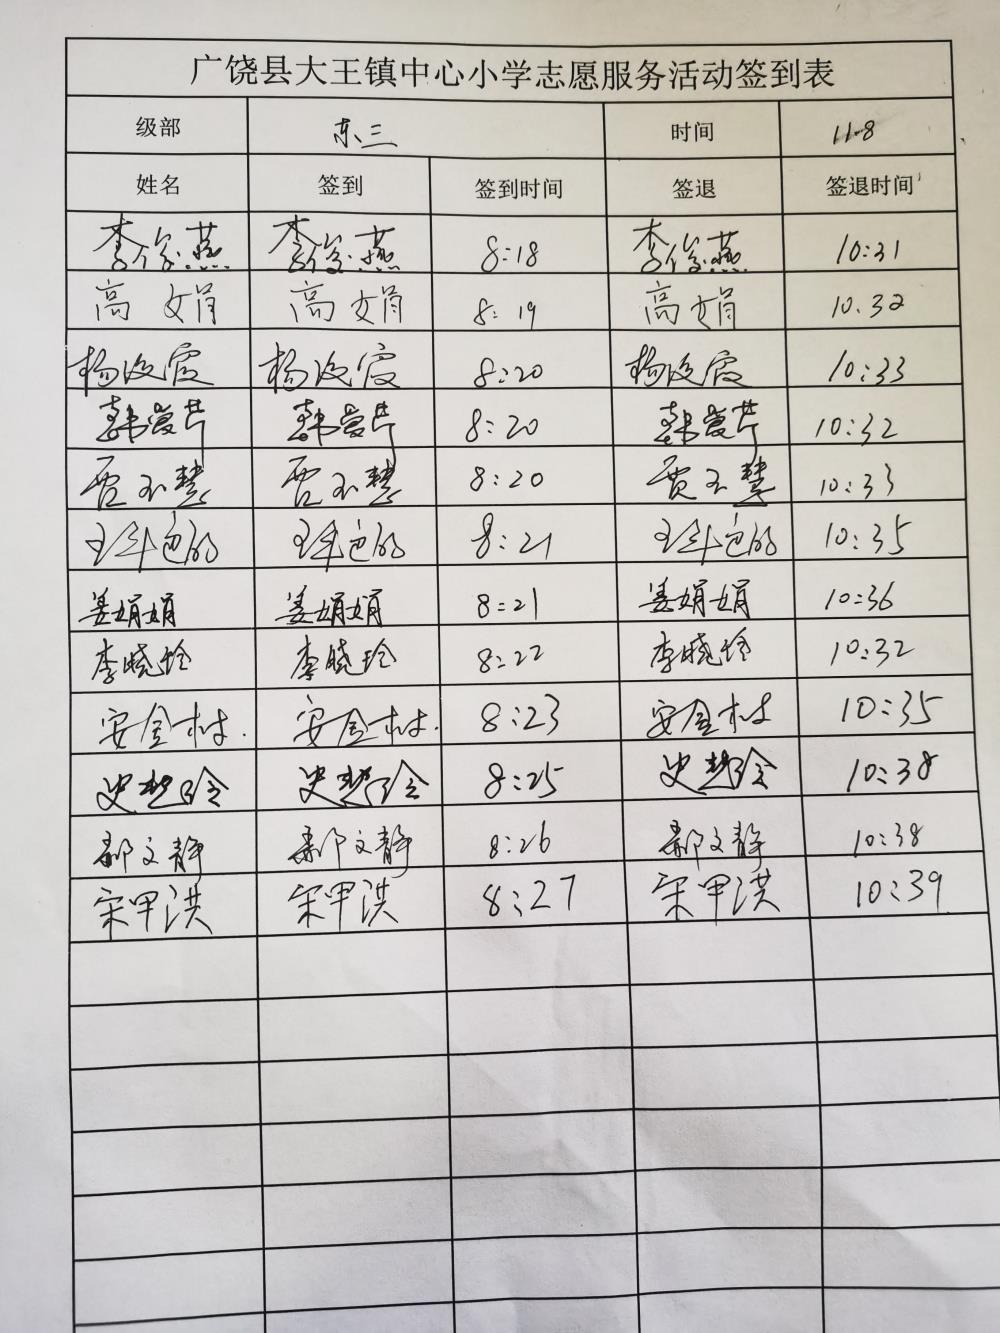 广饶县大王镇中心小学志愿服务活动签到表
级部 东三 时间 11.8
姓名 签到 签到时间 签退 签退时间
李俊燕 李俊燕 8:18 李俊燕 10:31
高娟 高娟 8:19 高娟 10:32
杨俊霞 杨俊霞 8:20 杨俊霞 10:33
韩爱芹 韩爱芹 8:20 韩爱芹 10:32
贾玉慧 贾玉慧 8:20 贾玉慧 10:33
8:21 10:35
姜娟娟 姜娟娟 8:21 姜娟娟 10:36
李晓玲 李晓玲 8:22 李晓玲 10:32
安金村. 安金村. 8:23 安金村 10:35
史楚玲 史楚玲 8:25 史楚玲 10:38
郝文静 郝文静 8:26 郝文静 10:38
宋甲洪 宋甲洪 8:27 宋甲洪 10:39